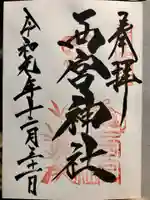 奉拝
西宮神社
令和元年十二月三十一日